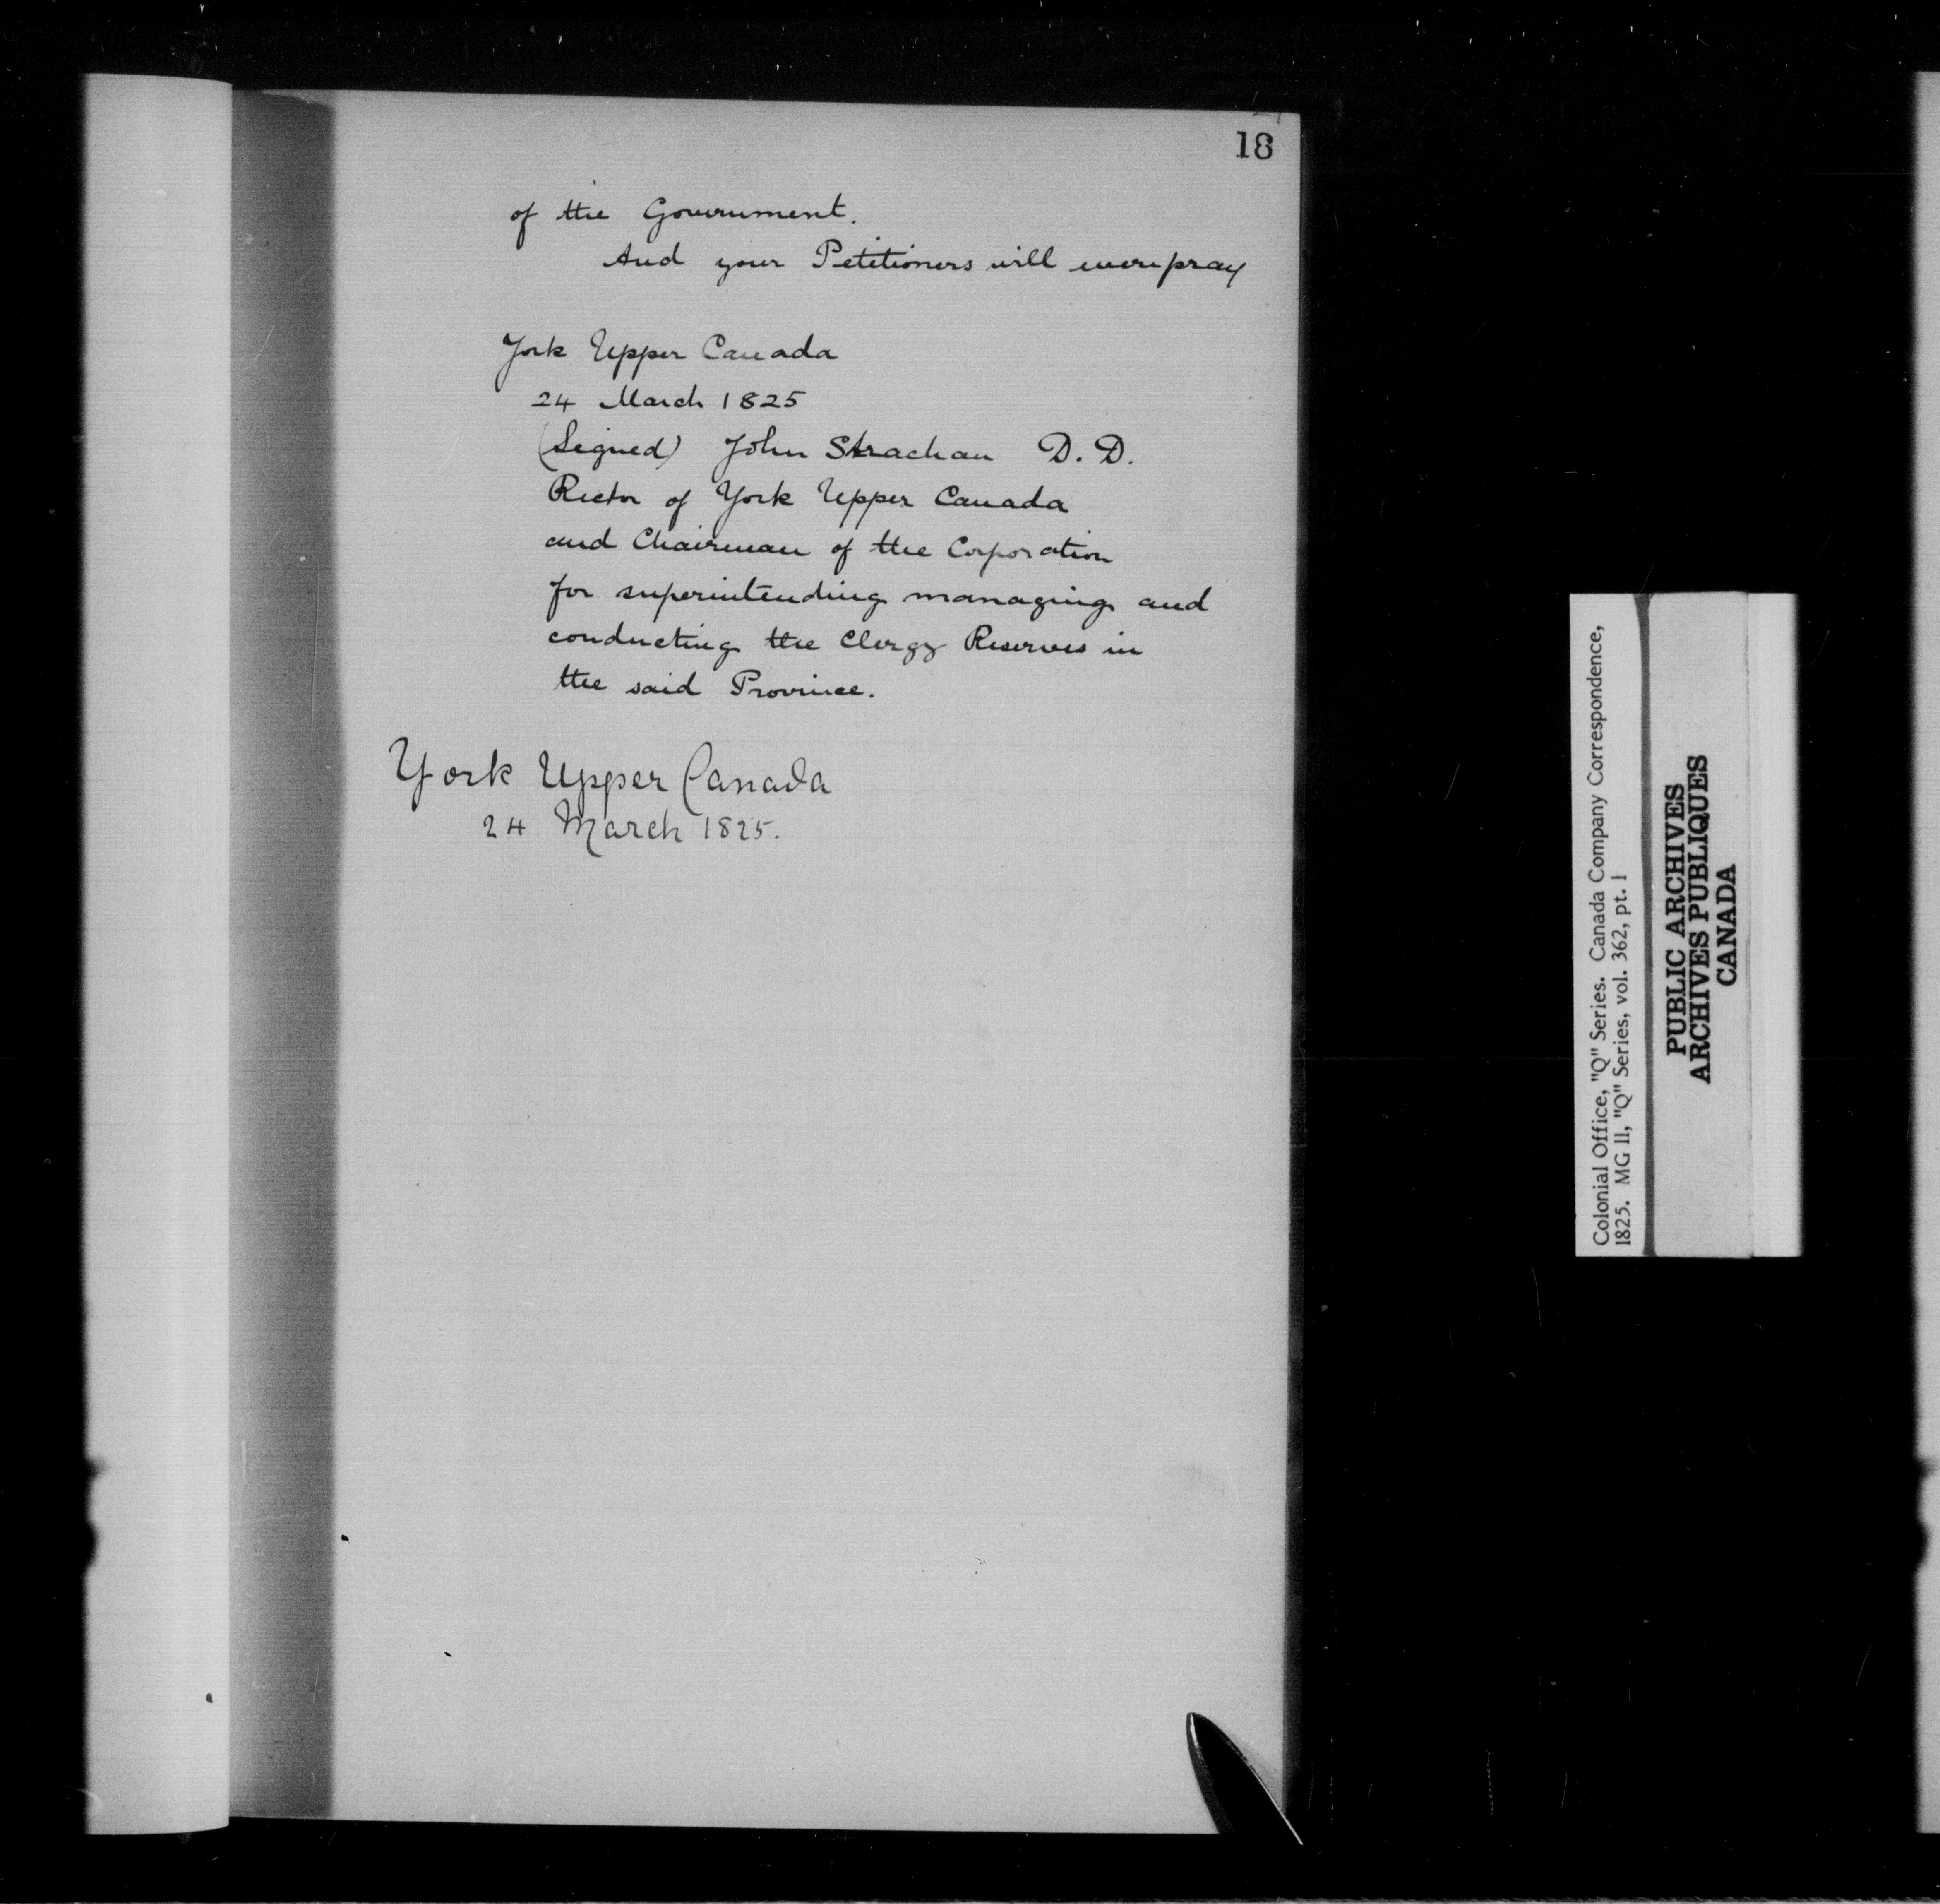 18
of the Government.
And your Petitioners will ever pray
York Upper Canada
24 March 1825
(Signed) John Strachan D. D.
Rector of York Upper Canada
and Chairman of the Corporation
for superintending managing and
conducting the Clergy Reserves in
the said Province.
York Upper Canada
24 March 1825.
Colonial Office, "Q" Series. Canada Company Correspondence,
1825. MG 11, "Q" Series, vol. 362, pt. 1
PUBLIC ARCHIVES
ARCHIVES PUBLIQUES
CANADA